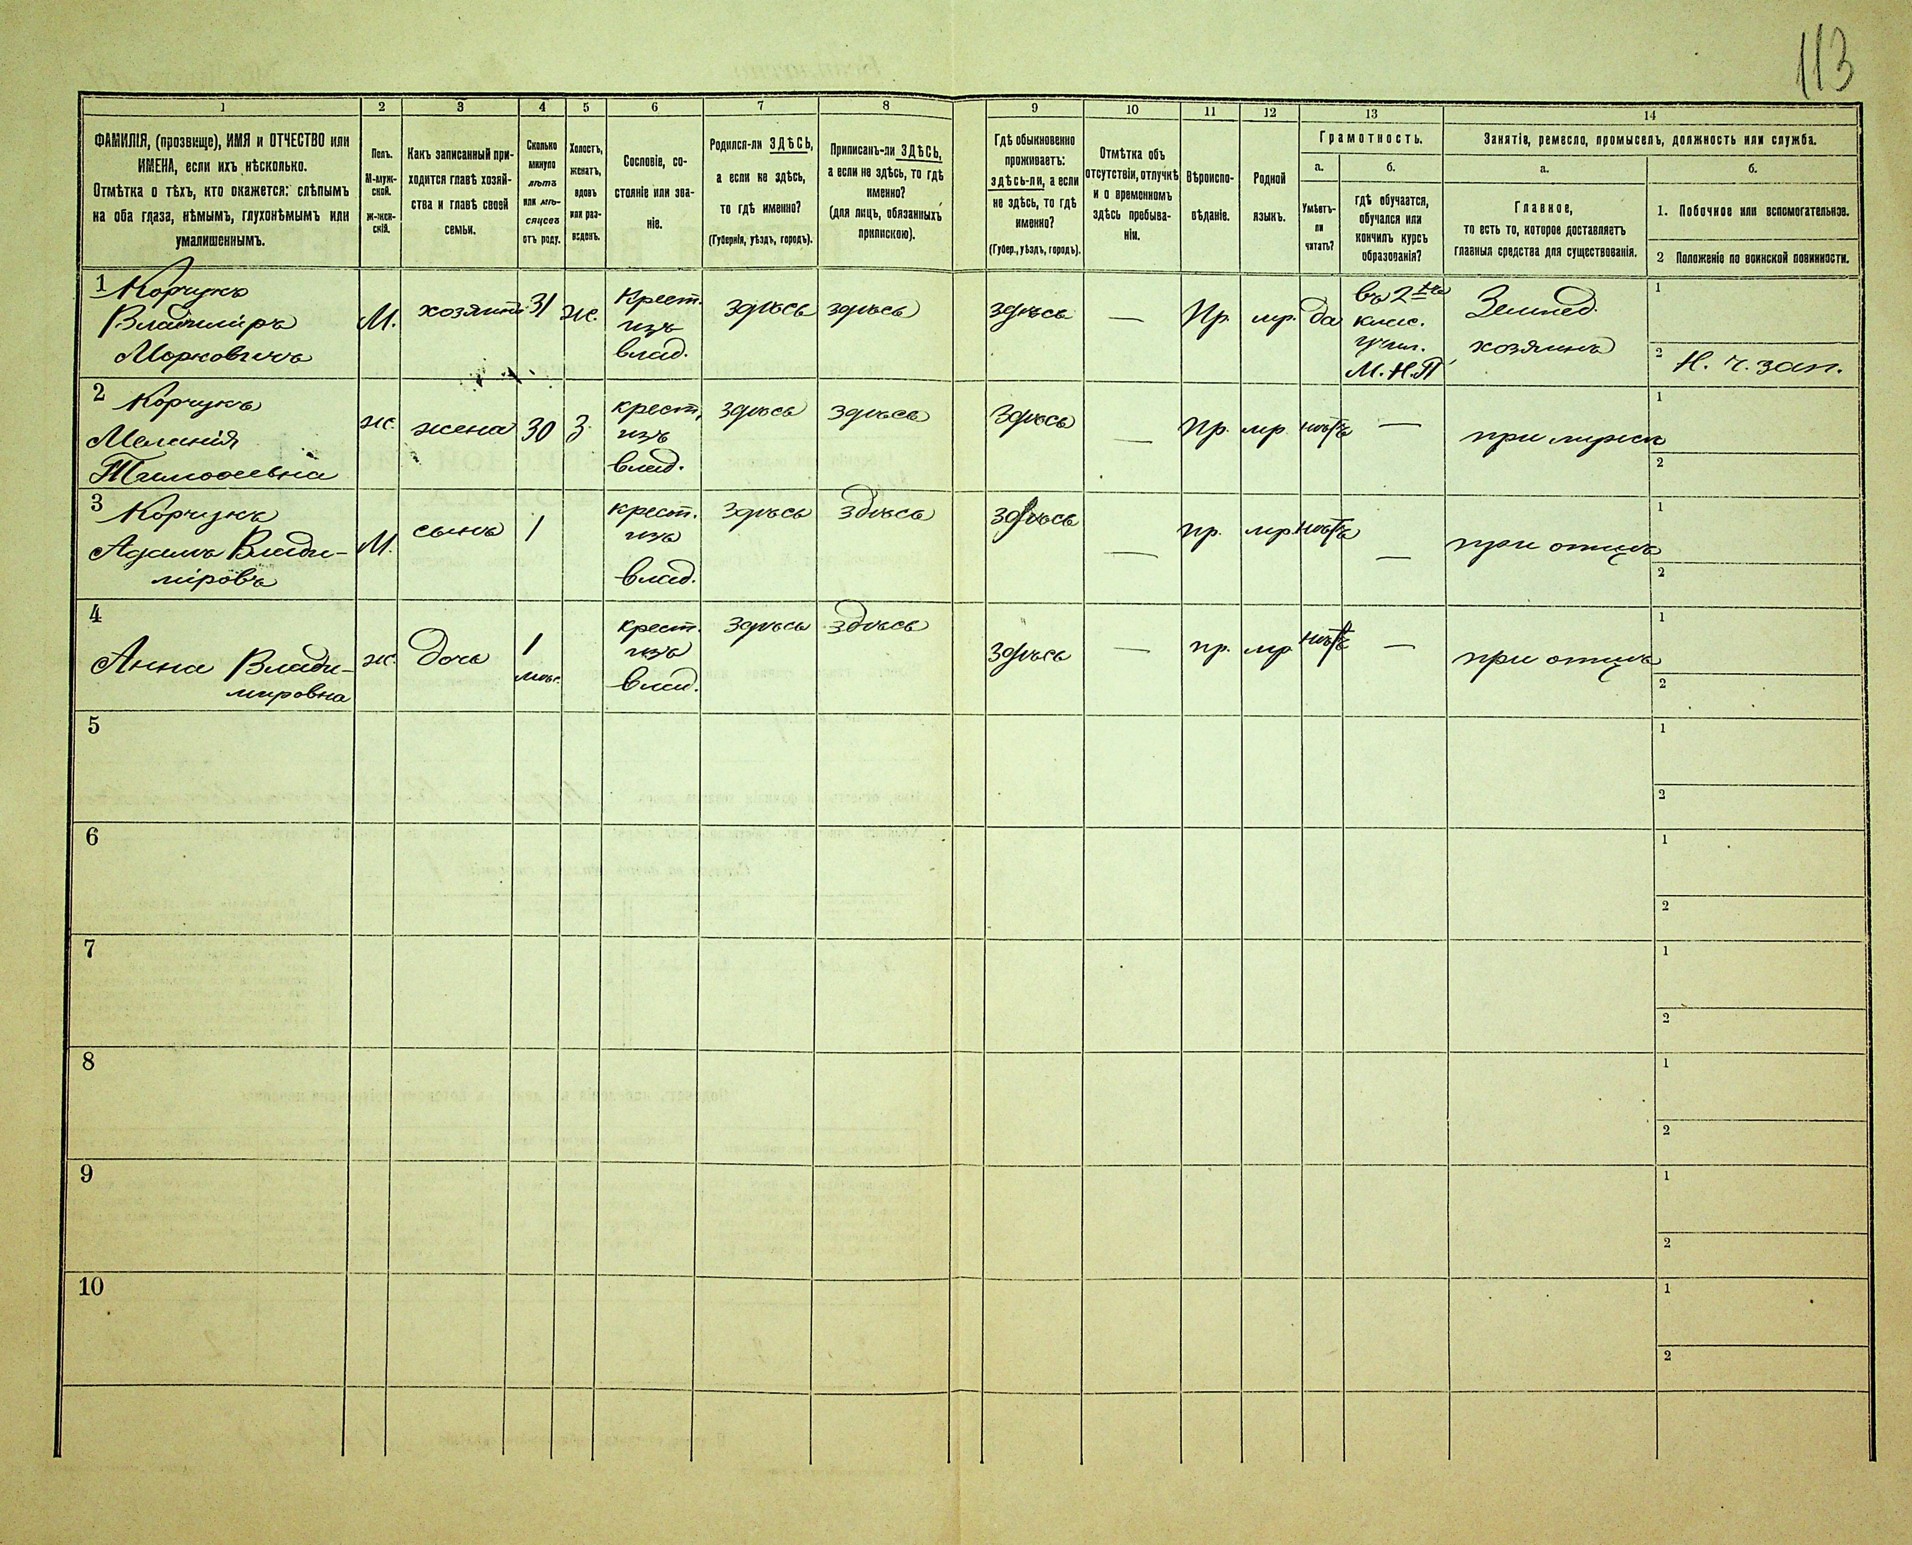 113
1
2
3
4
5
6
7
8
9
10
11
12
13
14
ФАМИЛІЯ, (прозвище), ИМЯ и ОТЧЕСТВО или
ИМЕНА, если ихъ нѣсколько.
Отмѣтка о тѣхъ, кто окажется: слѣпымъ
на оба глаза, нѣмымъ, глухонѣмымъ или
умалишеннымъ.
Полъ.
М-муж-
ской.
ж-жен-
скій.
Какъ записанный при-
ходится главѣ хозяй-
ства и главѣ своей
семьи.
Сколько
минуло
лѣтъ
или мѣ-
сяцевъ
отъ роду.
Холостъ,
женатъ,
вдовъ
или раз-
веденъ.
Сословіе, со-
стояніе или зва-
ніе.
Родился-ли ЗДѢСЬ,
а если не здѣсь,
то гдѣ именно?
(Губернія, уѣздъ, городъ).
Приписанъ-ли ЗДѢСЬ,
а если не здѣсь, то гдѣ
именно?
(для лицъ, обязанныхъ
припискою).
Гдѣ обыкновенно
проживаетъ:
здѣсь-ли, а если
не здѣсь, то гдѣ
именно?
(Губер., уѣздъ, городъ).
Отмѣтка объ
отсутствіи, отлучкѣ
и о временномъ
здѣсь пребыва-
ніи.
Вѣроиспо-
вѣданіе.
Родной
языкъ.
Грамотность.
а.
Умѣетъ-
ли
читать?
б.
гдѣ обучается,
обучался или
кончилъ курсъ
образованія?
Занятіе, ремесло, промыселъ, должность или служба.
а.
Главное,
то есть то, которое доставляетъ
главныя средства для существованія.
б.
1. Побочное или вспомогательное.
2 Положеніе по воинской повинности.
1 Корчукъ
Владиміръ
Морковичъ
М.
хозяинъ
31
ж.
Крест.
изъ
влад.
здѣсь
здѣсь
здѣсь
—
Пр.
мр.
да
въ 2хъ
клас.
учил.
М.Н.П.
Землед.
хозяинъ
1
2 Н. ч. зап.
2 Корчукъ
Меланія
Тимофеевна
ж.
жена
30
З.
крест.
изъ
влад.
здѣсь
здѣсь
здѣсь
—
Пр.
мр.
нѣтъ
—
при мужѣ
1
2
3 Корчукъ
Адамъ Влади-
міровъ
М.
сынъ
1
крест.
изъ
влад.
здѣсь
здѣсь
здѣсь
—
пр.
мр.
нѣтъ
—
при отцѣ
1
2
4
Анна Влади-
мировна
ж.
дочь
1
мѣс.
крест.
изъ
влад.
здѣсь
здѣсь
здѣсь
—
пр.
мр.
нѣтъ
—
при отцѣ
1
2
5
1
2
6
1
2
7
1
2
8
1
2
9
1
2
10
1
2